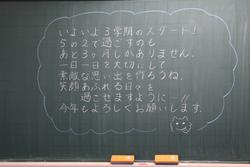 いよいよ3学期のスタート!
5の2で過ごすのも
あと3ヶ月しかありません。
一日一日を大切にして
素敵な思い出を作ろうね。
笑顔あふれる日々を
過ごせますように…!!
今年もよろしくお願いします。